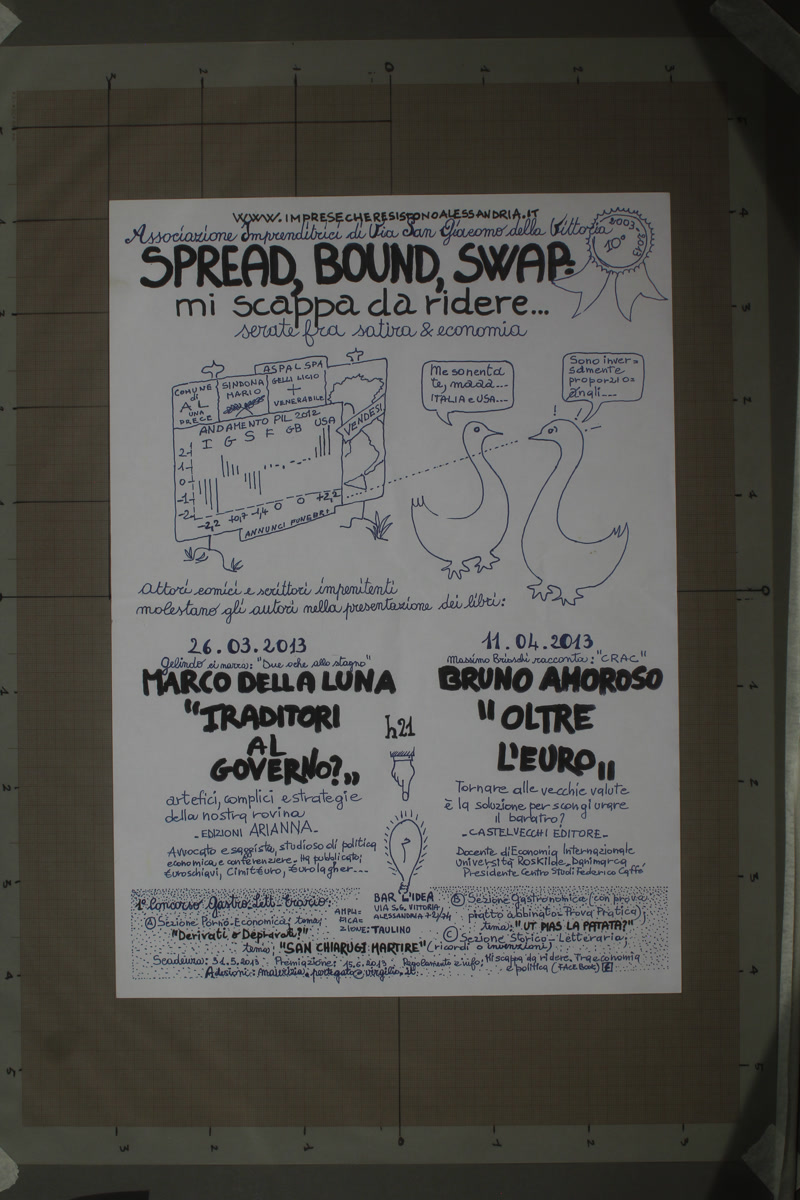 WWW.IMPRESECHERESISTONOALESSANDRIA.IT
Associazione Imprenditrici di Via San Giacomo della Vittoria
2003-2013
10°
SPREAD, BOUND, SWAP:
mi scappa da ridere...
serate fra satira & economia
COMUNE
di
AL
UNA
PRECE
SINDONA
MARIO
ASPAL SPA
GELLI LICIO
+
VENERABILE
VENDESI
ANDAMENTO PIL 2012
I G S F GB USA
2
1
0
-1
-2
-2,2 +0,7 -1,4 0 0 +2,2
ANNUNCI FUNEBRI
Me so nenta
te, maaà...
ITALIA e USA...
Sono inver=
samente
proporzio=
Angli...
attori comici e scrittori impenitenti
molestano gli autori nella presentazione dei libri:
26.03.2013
Gelindo ci narra: "Due oche allo stagno"
MARCO DELLA LUNA
"TRADITORI
AL
GOVERNO?"
artefici, complici e strategie
della nostra rovina
- EDIZIONI ARIANNA -
Avvocato e saggista, studioso di politica
economica, e conferenziere. Ha pubblicato:
€uroschiavi, Cimit€uro, €urolagher...
h21
11.04.2013
Massimo Brioschi racconta: "CRAC"
BRUNO AMOROSO
"OLTRE
L'EURO"
Tornare alle vecchie valute
è la soluzione per scongiurare
il baratro?
- CASTELVECCHI EDITORE -
Docente di Economia Internazionale
Università Roskilde - Danimarca
Presidente Centro Studi Federico Caffé
1° Concorso Gastro-Lett-Erario:
(A) Sezione Porno-Economica; tema:
"Derivati o Depravati?"
AMPLI=
FICA=
ZIONE: TAULINO
BAR L'IDEA
VIA S.G. VITTORIA,
ALESSANDRIA 72/74
(B) Sezione Gastronomica (con prova
piatto abbinato: Prova Pratica);
tema: "UT PIAS LA PATATA?"
(C) Sezione Storico-Letteraria;
tema: "SAN CHIARUGI MARTIRE" (ricordi o invenzioni)
Scadenza: 31.5.2013 Premiazione: 15.6.2013 Regolamento e info: Mi scappa da ridere. Tra economia
e politica (FACE BOOK)
Adesioni: